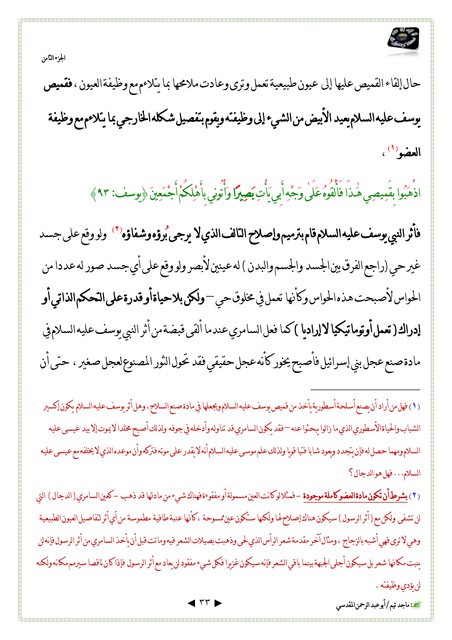 الجزء الثامن
حال إلقاء القميص عليها إلى عيون طبيعية تعمل وترى وعادت ملامحها بما يتلاءم مع وظيفة العيون ، فقميص
يوسف عليه السلام يعيد الأبيض من الشيء إلى وظيفته ويقوم بتفصيل شكله الخارجي بما يتلاءم مع وظيفة
العضو (١) ،
اذْهَبُوا بِقَمِيصِي هَٰذَا فَأَلْقُوهُ عَلَىٰ وَجْهِ أَبِي يَأْتِ بَصِيرًا وَأْتُونِي بِأَهْلِكُمْ أَجْمَعِينَ ﴿يوسف: ٩٣﴾
فأثر النبي يوسف عليه السلام قام بترميم وإصلاح التالف الذي لا يرجى بُرؤه وشفاؤه (٢) ولو وقع على جسد
غير حي (راجع الفرق بين الجسد والجسم والبدن ) له عينين لأبصر ولو وقع على أي جسد صور له عددا من
الحواس لأصبحت هذه الحواس وكأنها تعمل في مخلوق حي – ولكن بلا حياة أو قدرة على التحكم الذاتي أو
إدراك ( تعمل أوتوماتيكيا لا إراديا ) كما فعل السامري عندما ألقى قبضة من أثر النبي يوسف عليه السلام في
مادة صنع عجل بني إسرائيل فأصبح يخور كأنه عجل حقيقي فقد تحول الثور المصنوع لعجل صغير ، حتى أن
(١) فهل من أراد أن يصنع أسلحة أسطورية يأخذ من قميص يوسف عليه السلام ويجعلها في مادة صنع السلاح ، وهل أثر يوسف عليه السلام يكون إكسير
الشباب والحياة الأسطوري الذي ما زالوا يبحثوا عنه – فقد يكون السامري قد تناوله وأدخله في جوفه ولذلك أصبح مخلدا لا يموت إلا بيد عيسى عليه
السلام ومهما حصل له فإن يتجدد ويعود شابا فتيا قويا ولذلك علم موسى عليه السلام أنه لا يقدر على موته فتركه وأن موعده الذي لا يخلفه مع عيسى عليه
السلام... فهل هو الدجال ؟
(٢) بشرط أن تكون مادة العضو كاملة موجودة – فمثلا لو كانت العين مسمولة أو مفقودة فهناك شيء من مادتها قد ذهب – كعين السامري ( الدجال ) التي
لن تشفى ولكن مع ( أثر الرسول ) سيكون هناك إصلاح لها ولكنها ستكون عين ممسوحة ، كأنها عنبة طافية مطموسة من أي أثر لتفاصيل العيون الطبيعية
وهي لا ترى فهي أشبه بالزجاج ، ومثال آخر مقدمة شعر الرأس الذي لحى وذهبت بصيلات الشعر فيه وماتت قبل أن يأخذ السامري من أثر الرسول فإنه لن
ينبت مكانها شعر بل سيكون أجلى الجبهة بينما باقي الشعر فإنه سيكون غزيرا فكل شيء مفقود لن يعاد مع أثر الرسول فإذا كان ناقصا سيرمم مكانه ولكنه
لن يؤدي وظيفته .
٣٣
ماجد تيم / أبو عبد الرحمن المقدسي